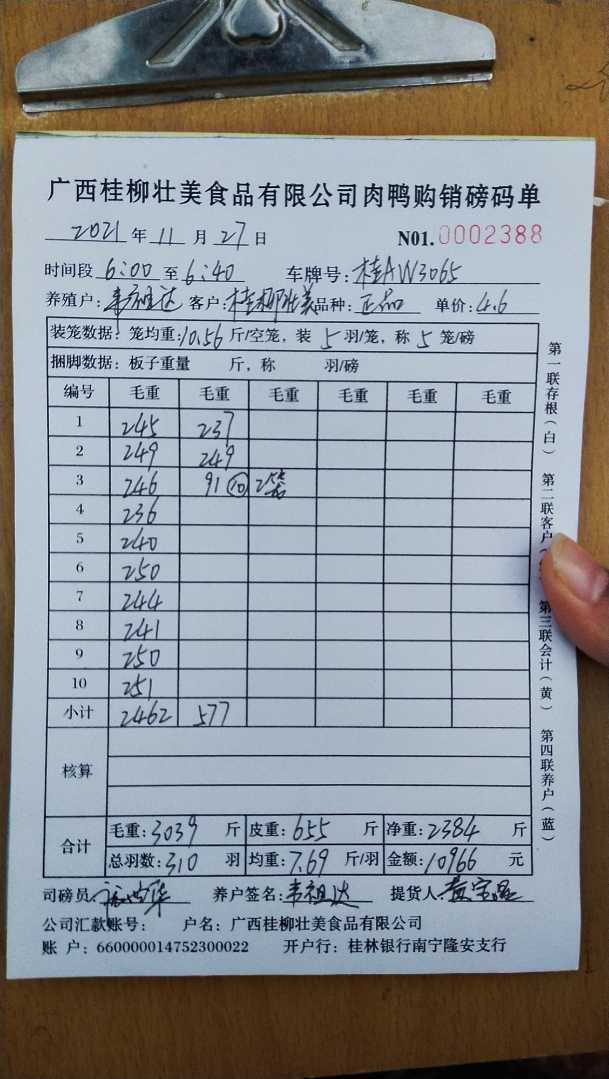 广西桂柳壮美食品有限公司肉鸭购销磅码单
2021年11月27日 N01.0002388
时间段6:00至6:40 车牌号:桂AW3065
养殖户:韦祖达 客户:桂柳壮美 品种:正品 单价:4.6
装笼数据:笼均重:10.56斤/空笼,装5羽/笼,称5笼/磅
捆脚数据:板子重量 斤,称 羽/磅
编号 毛重 毛重 毛重 毛重 毛重 毛重
1 245 237
2 249 249
3 246 91 ⑩ 2笼
4 236
5 240
6 250
7 244
8 241
9 250
10 251
小计 2462 577
核算
合计 毛重:3039斤 皮重:655斤 净重:2384斤
总羽数:310羽 均重:7.69斤/羽 金额:10966元
司磅员: 养户签名:韦祖达 提货人:
公司汇款账号: 户名:广西桂柳壮美食品有限公司
账 户:660000014752300022 开户行:桂林银行南宁隆安支行
第一联存根(白) 第二联客户( 第三联会计(黄) 第四联养户(蓝)